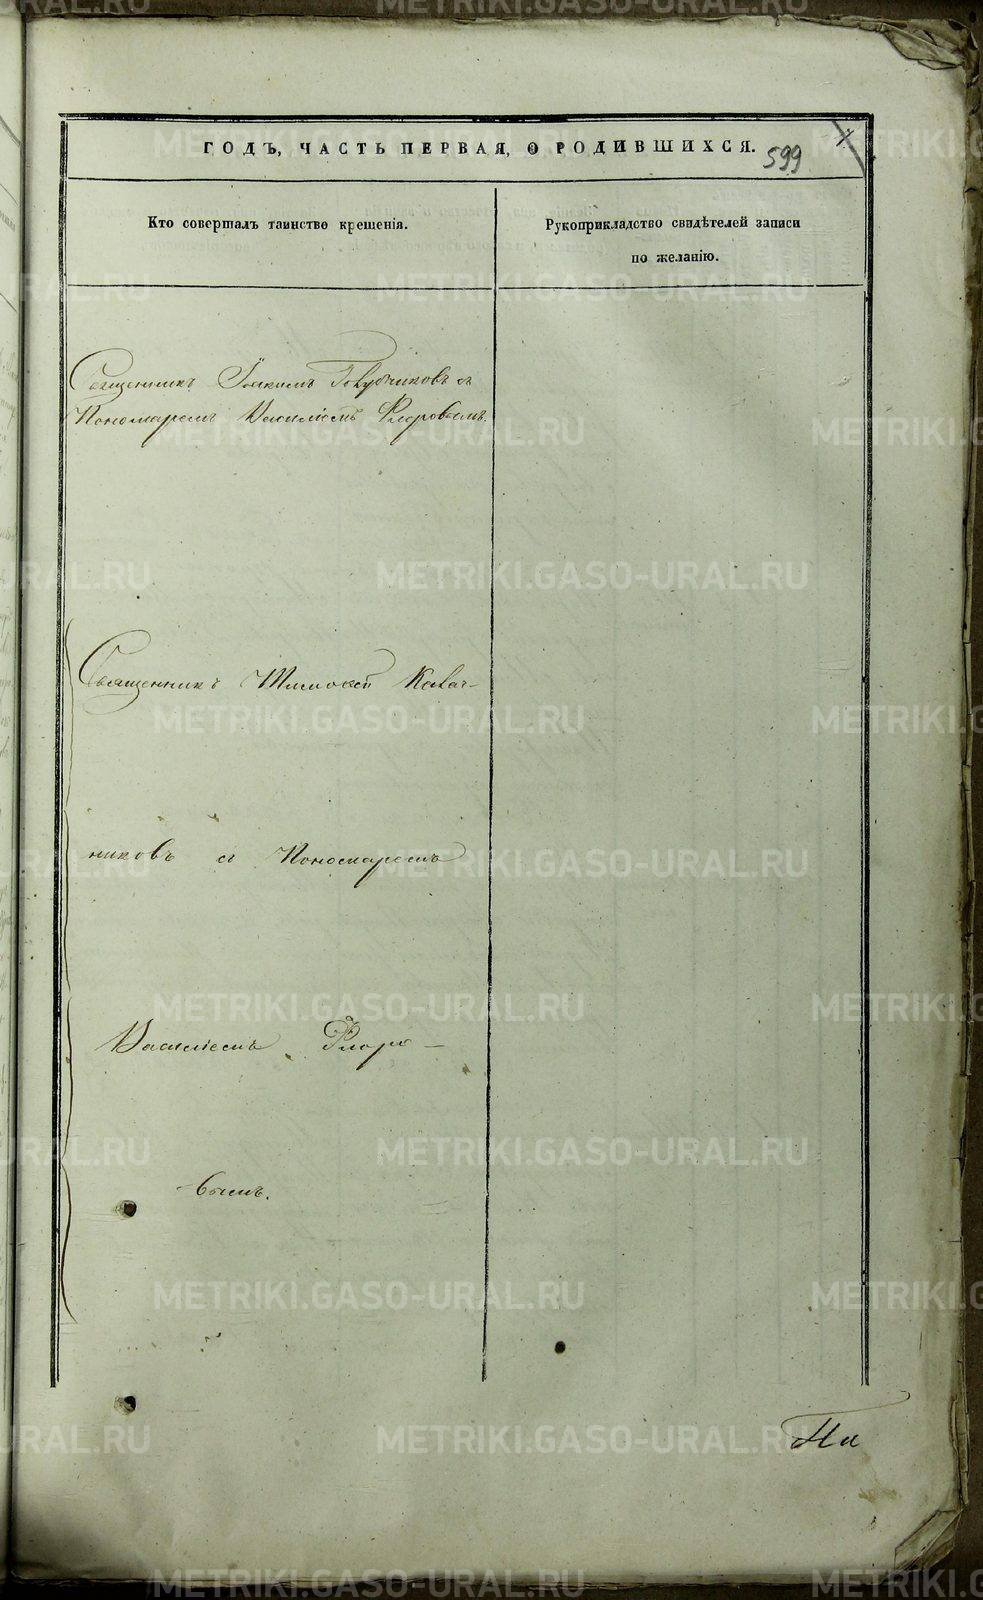 ГОДЪ, ЧАСТЬ ПЕРВАЯ, О РОДИВШИХСЯ.
599
Кто совершалъ таинство крещенія.
Рукоприкладство свидѣтелей записи
по желанію.
Священникъ Іоакимъ съ
Пономаремъ Василіемъ Флоровымъ.
Священникъ Тимоѳей Калач-
никовъ съ Пономаремъ
Василіемъ Флоро-
-вымъ.
METRIKI.GASO-URAL.RU